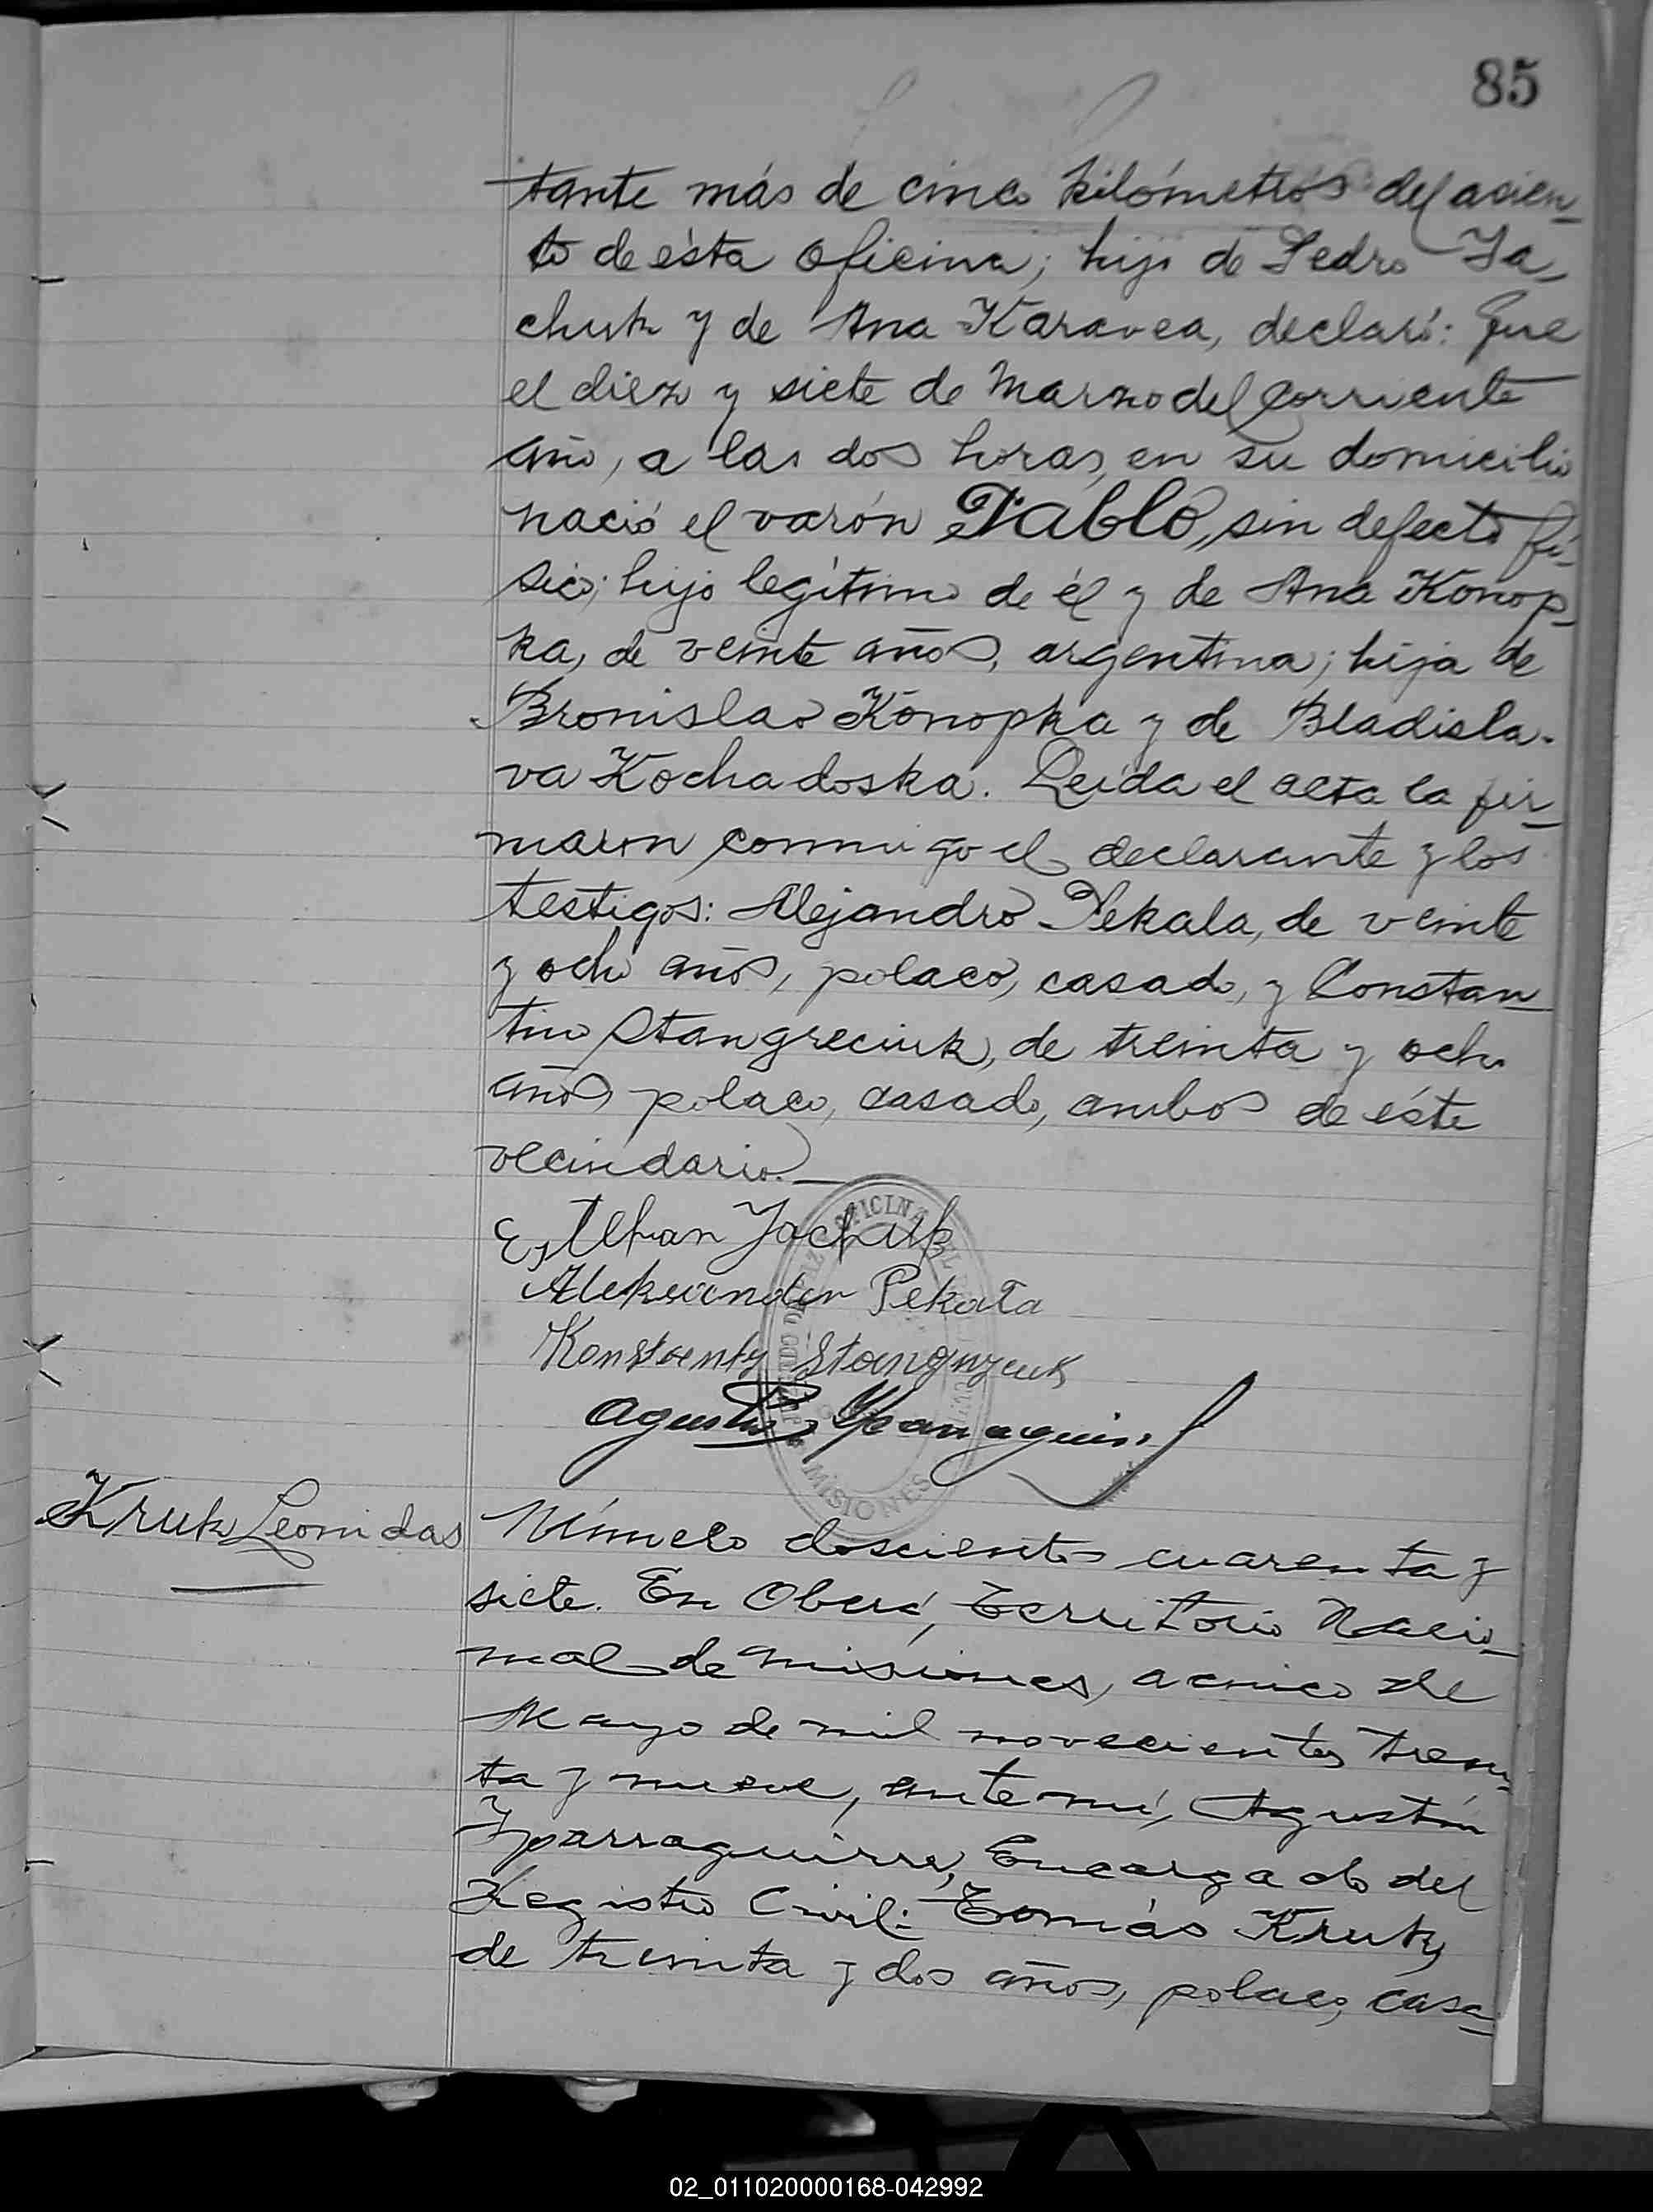 85
tante más de cinco kilómetros del asien-
to de ésta oficina; hijo de Pedro Ja-
chuk y de Ana Karavea, declaró: Que
el diez y siete de Marzo del corriente
año, a las dos horas, en su domicilio
nació el varón Pablo, sin defecto fí-
sico; hijo legítimo de él y de Ana Konop-
ka, de veinte años, argentina; hija de
Bronislao Konopka y de Bladisla-
va Kochadoska. Leída el acta la fir-
maron conmigo el declarante y los
testigos: Alejandro Pekala, de veinte
y ocho años, polaco, casado, y Constan-
tino Stangreciuk, de treinta y ocho
años, polaco, casado, ambos de éste
vecindario.
Esteban Jachuk
Aleksander Pekała
Konstanty
Agustín
OFICINA
MISIONES
Kruk Leonidas
Número doscientos cuarenta y
siete. En Oberá, Territorio Nacio-
nal de Misiones, a cinco de
Mayo de mil novecientos trein-
ta y nueve, ante mí, Agustín
Yparraguirre, Encargado del
Registro Civil: Tomás Kruk,
de treinta y dos años, polaco, casa-
02_011020000168-042992